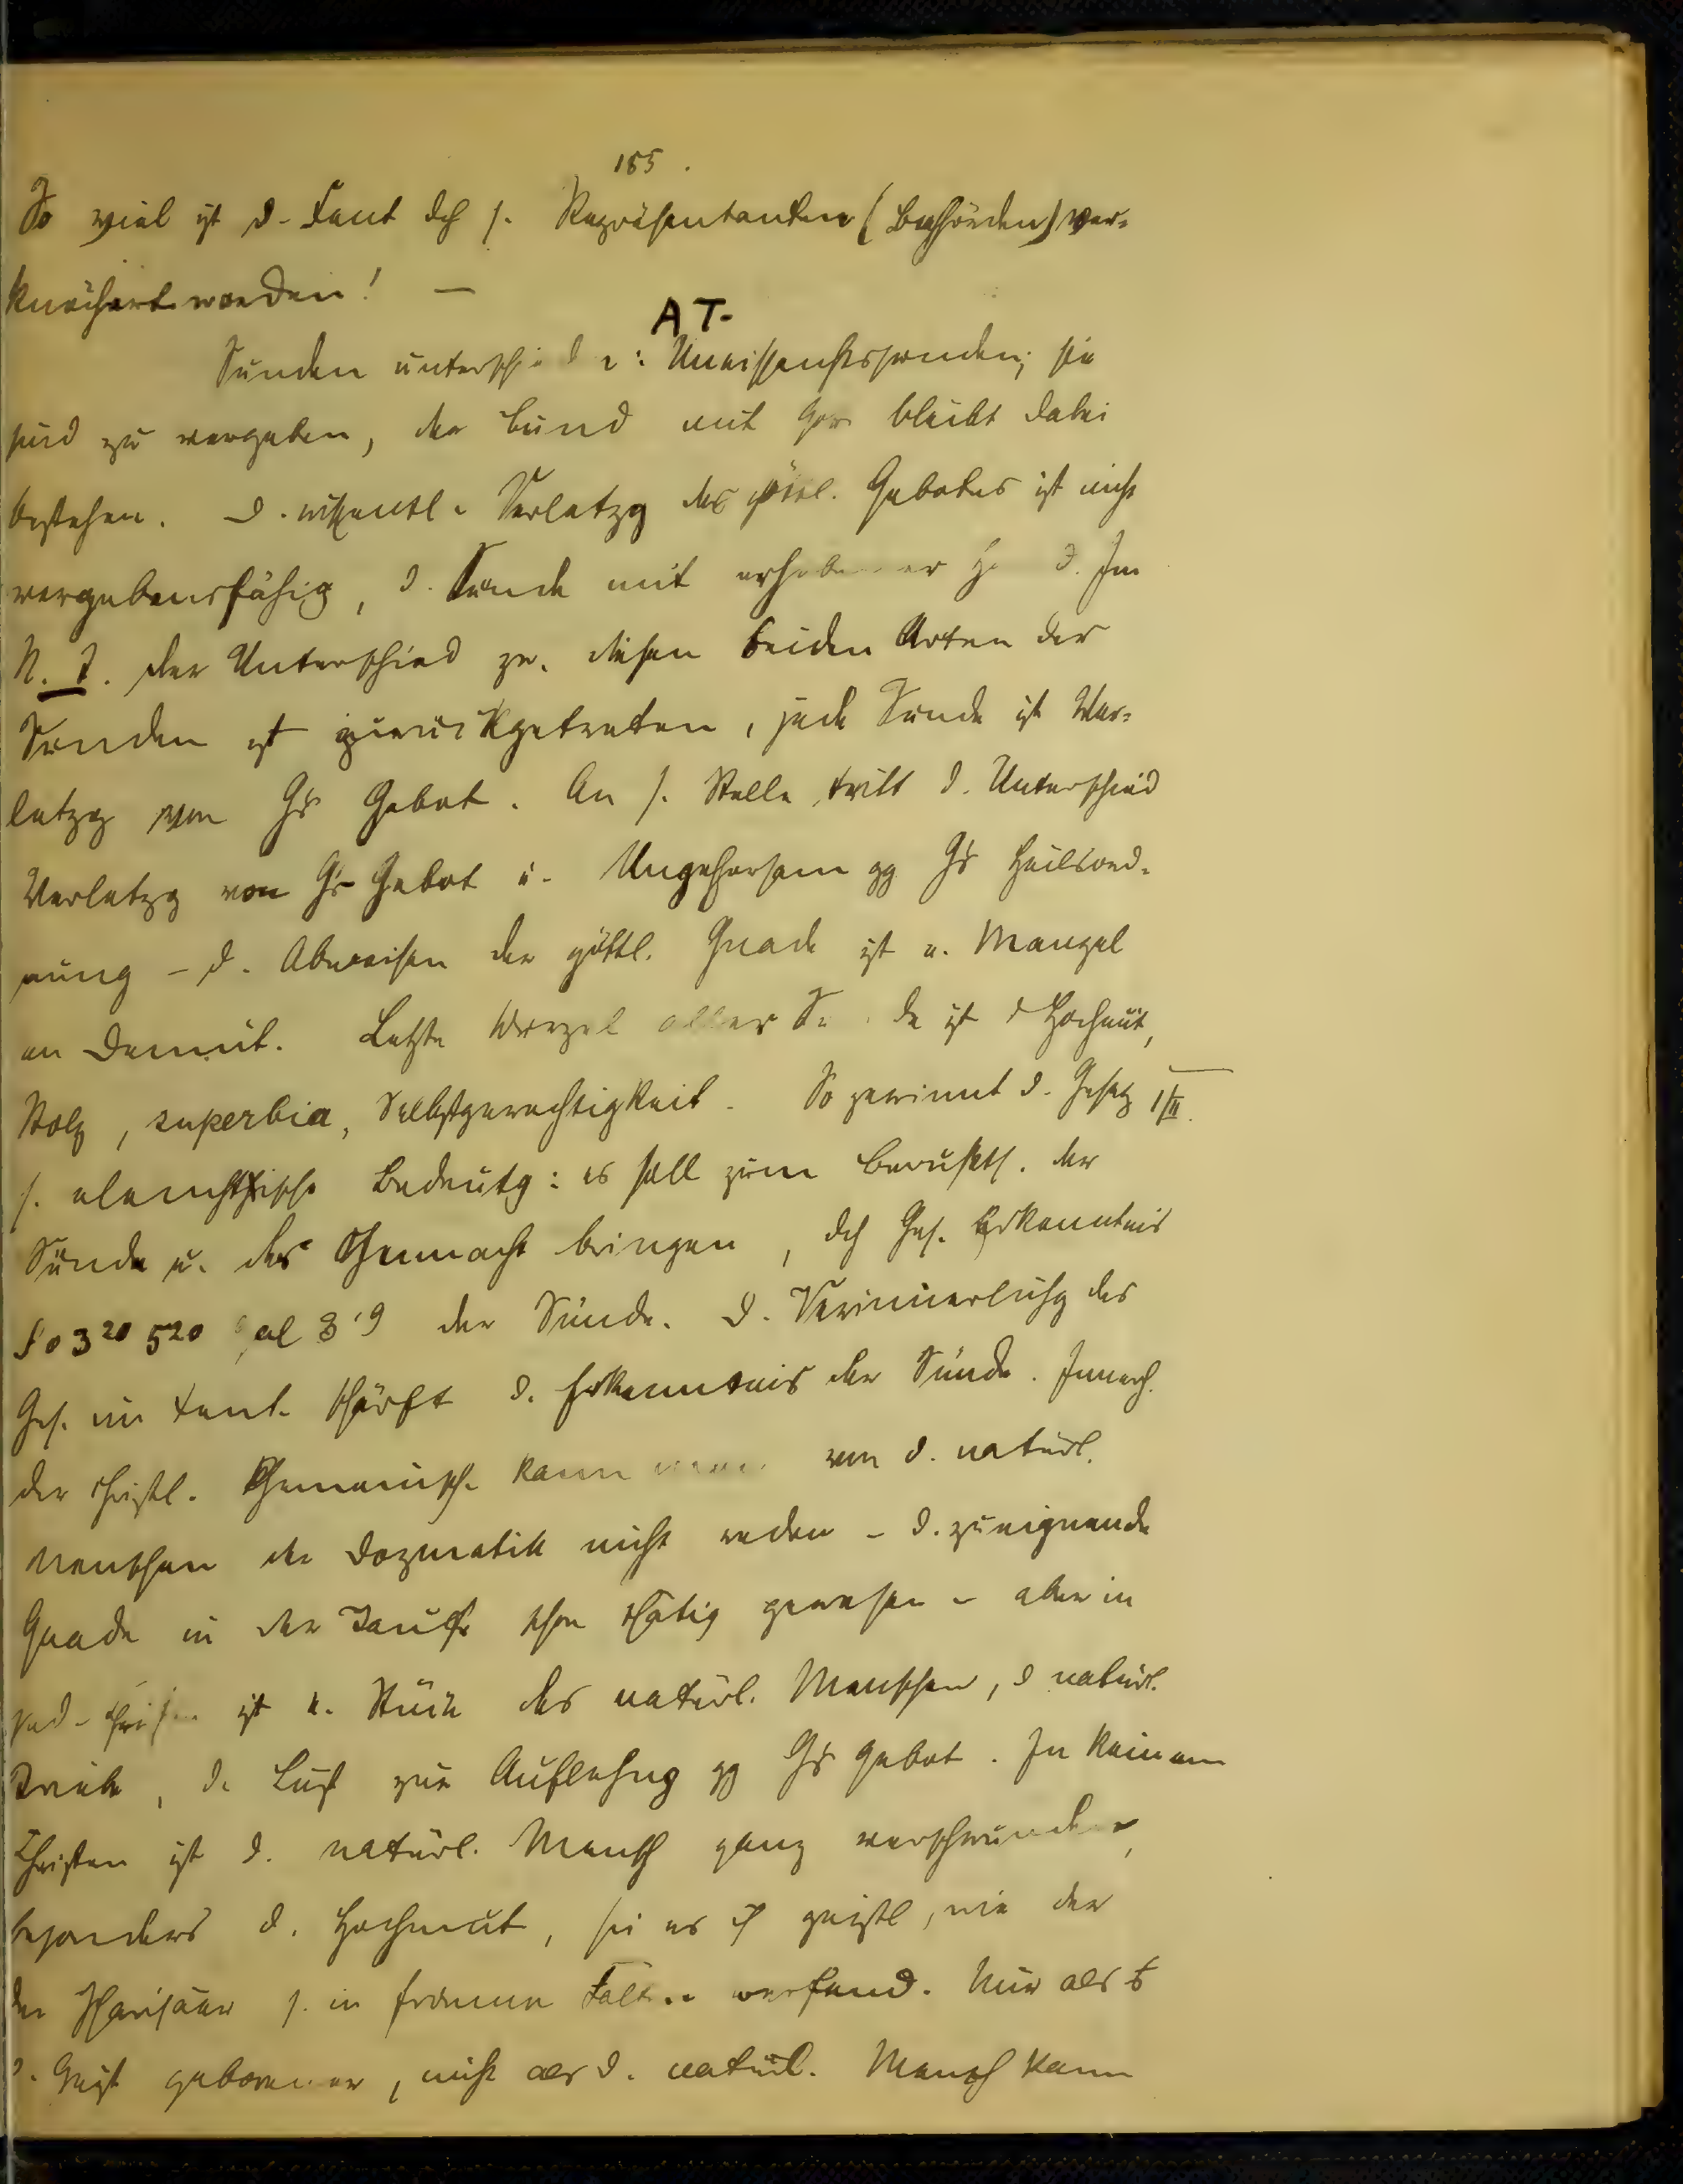 185.
So viel ist d. Tent dch s. Repräsentanten (Behörden) ver-
knöchert worden! —
AT.
Sünden unterschied : Unwissenhtssünden; sie
sind zu vergeben, der Bund mit bleibt dabei
bestehen. D. wissentl. Verletzg des göttl. Gebotes ist nicht
vergebensfähig, d. Sünde mit erhobener H d. Im
N. T. der Unterschied zw. diesen beiden Arten der
Sünden ist zurückgetreten, jede Sünde ist Ver-
letzg von Gs Gebot. An s. Stelle tritt d. Unterschied
Verletzg von Gs Gebot u. Ungehorsam gg Gs Heilsord-
nung – d. Abweisen der göttl. Gnade ist e. Mangel
an Demut. Letzte Wurzel aller Sü de ist d Hochmut,
Stolz, superbia, Selbstgerechtigkeit. So gewinnt d. Gesetz I/II.
s. elenchtische Bedeutg: es soll zum Bewußts. der
Sünde u. der Ohnmacht bringen, dch Ges. Erkenntnis
Rö 3 20 5 20 Gal 3 19 der Sünde. D. Verinnerlichg des
Ges. im schärft d. Erkenntnis der Sünde. Innerh.
der christl. Gemeinsch. kann man von d. natürl.
Menschen der Dogmatik nicht reden – d. zueignende
Gnade in der Taufe schon thätig gewesen – aber in
jed. Christen ist e. Stück des natürl. Menschen, d natürl.
Triebe, d. Lust zur Auflehng gg Gs Gebot. In keinem
Christen ist d. natürl. Mensch ganz verschwunden,
besonders d. Hochmut, sei es geistl, wie der
der Pharisäer s. in fromme Falten. Nur als
d. Geist geborener, nicht als d. natürl. Mensch kann